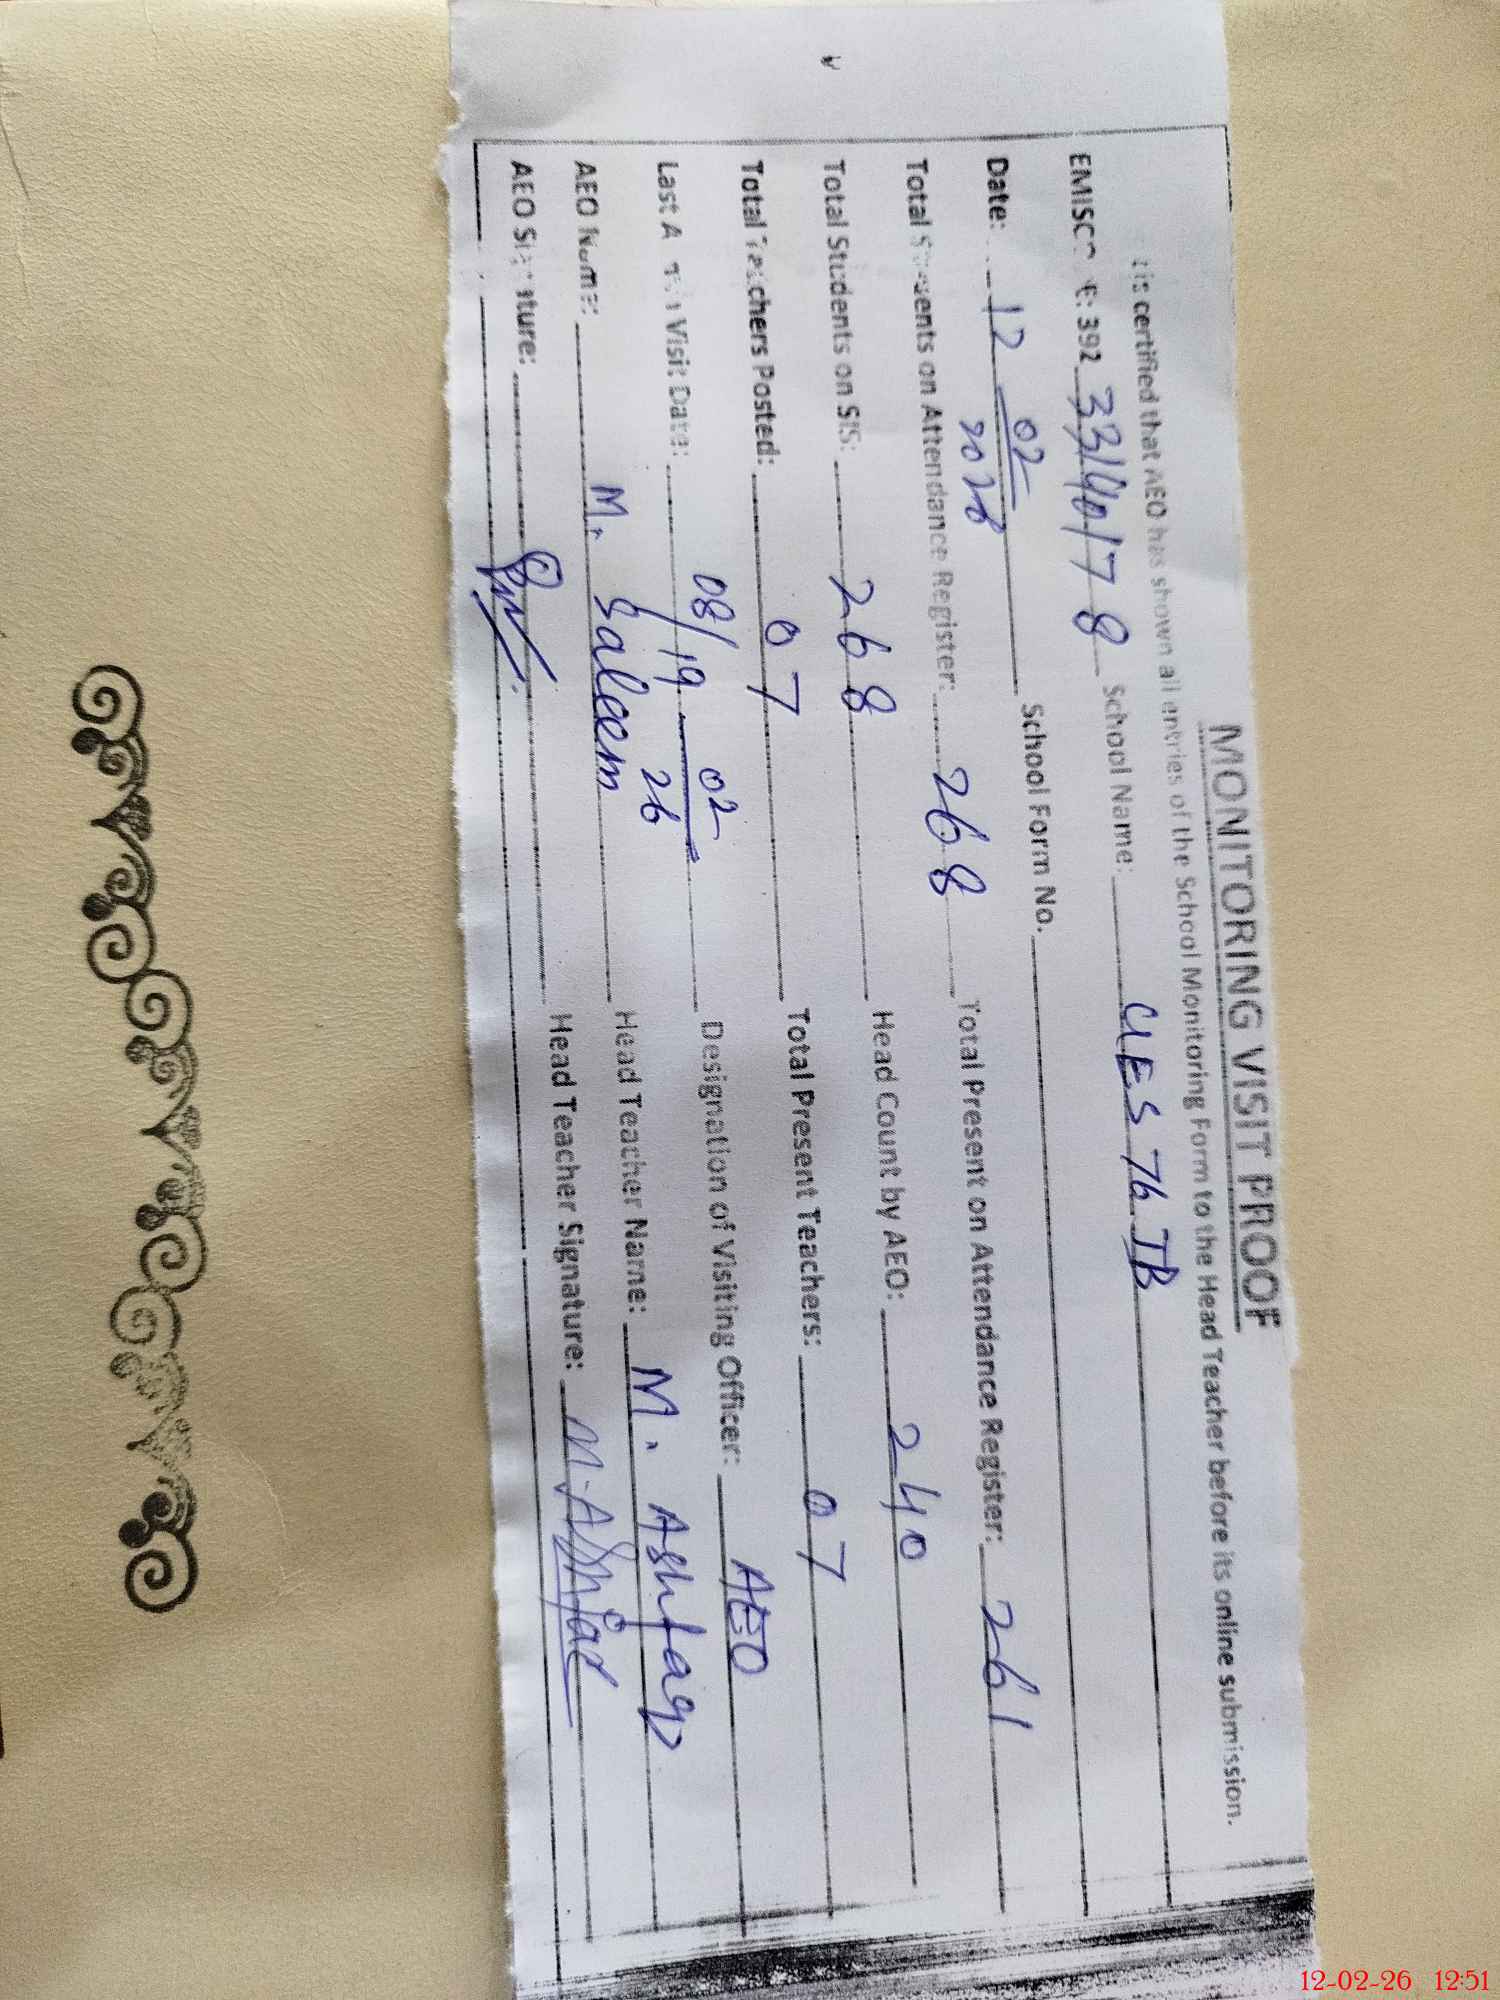 MONITORING VISIT PROOF
t is certified that AEO has shown all entries of the School Monitoring Form to the Head Teacher before its online submission.
EMISC E: 392 33140178 School Name: GES 76 JB
Date: 12 02 2026 School Form No.
Total Students on Attendance Register: 268 Total Present on Attendance Register: 261
Total Students on SIS: 268 Head Count by AEO: 240
Total Teachers Posted: 07 Total Present Teachers: 07
Last A Visit Date: 08/19 02 26 Designation of Visiting Officer: AEO
AEO Name: M. Saleem Head Teacher Name: M. Ashfaq
AEO Signature: Head Teacher Signature:
12-02-26 12:51